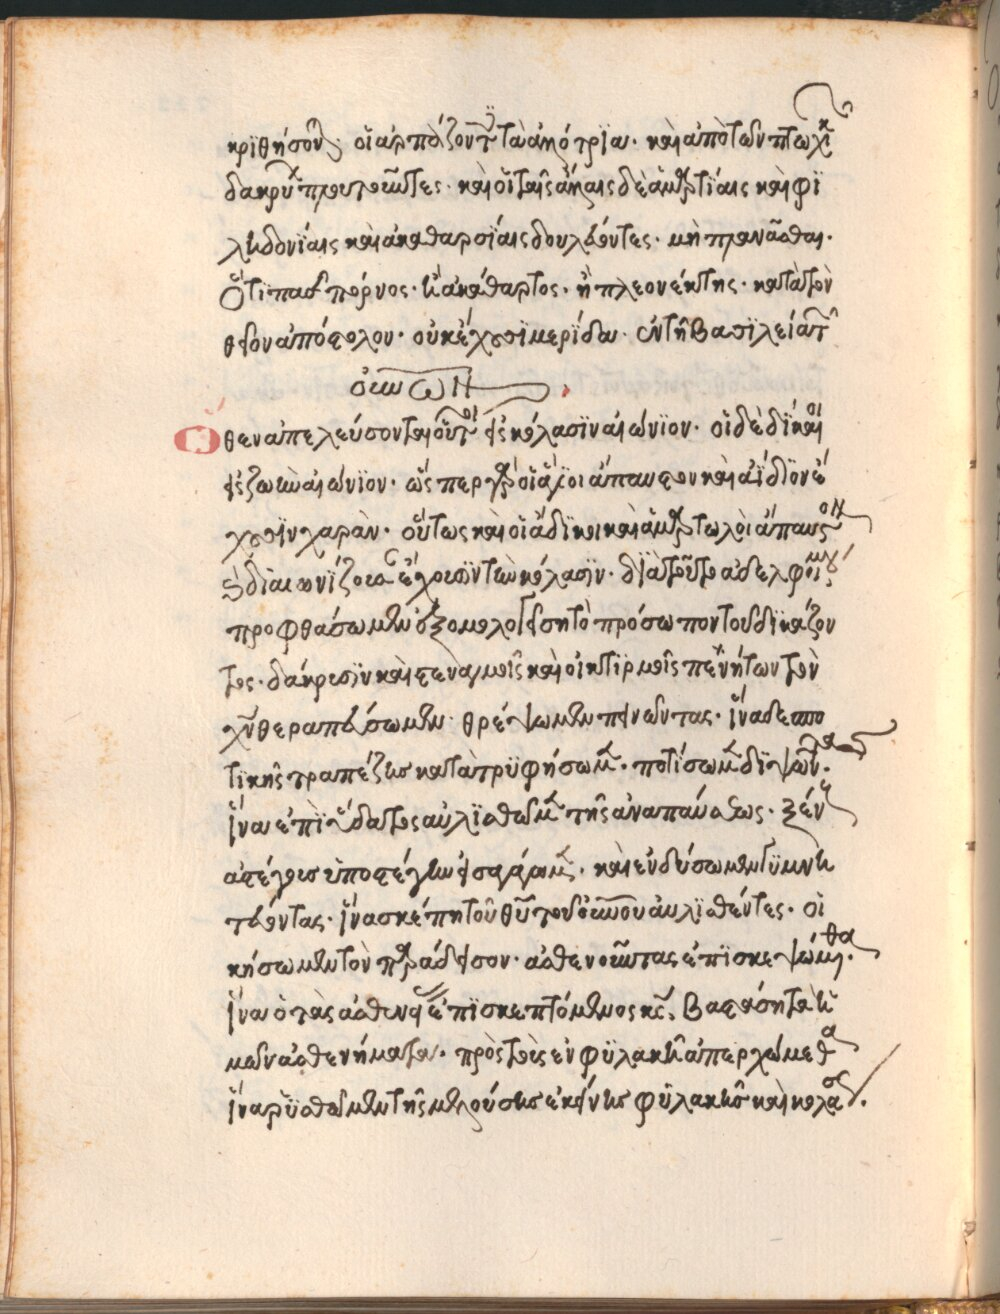 κρϊθήσονται οἱ ἁρπάζοντες τὰ ἀλότρϊα· καὶ ἀπὸ τῶν πτωχῶν
δακρύων πλουτοῦντες· καὶ οἱ ταῖς ἄλλαις δὲ ἁμαρτίαις καὶ φϊ
ληδονΐαις καὶ ἀκαθαρσίαις δουλεύοντες· μὴ πλανᾶσθαι·
Ὅτι πᾶς πόρνος· ἢ ἀκάθαρτος· ἢ πλεονέκτης· κατὰ τὸν
θεῖον ἀπόστολον· οὐκ ἔχουσϊ μερίδα· ἐν τῆ βασϊλεία τῶν
οὐνῶν
Ὅθεν ἀπελεύσονται οὗτοι εἰς κόλασϊν αἰώνϊον· οἱ δὲ δίκαιοι
εἰς ζωὴν αἰώνϊον· ὥσπερ γὰρ οἱ ἅγιοι ἄπαυστον καὶ ἀΐδϊον ἕ
χουσϊν χαρὰν· οὕτως καὶ οἱ ἄδϊκοι καὶ ἁμαρτωλοὶ ἄπαυστον
διαιωνίζουσαν ἔχουσϊν τὴν κόλασϊν· διὰ τοῦτο ἀδελφοί μου
προφθάσωμεν ἐξομολογήσει τὸ πρόσωπον τοῦ δϊκάζον
τος· δάκρυσϊν καὶ στεναγμοῖς καὶ οἰκτιρμοῖς πενήτων τὸν
χν θεραπεύσωμεν· θρέψωμεν πεινῶντας· ἵνα δεσπο
τϊκῆς τραπέζης κατατρϋφήσωμεν· ποτίσωμεν δϊψῶντας·
ἵνα ἐπὶ ὕδατος αὐλϊσθῶμεν τῆς ἀναπαύσεως· ξένους
ἀστέγους ὑπὸ στέγην εἰσαγάγωμεν· καὶ ἐνδύσωμεν γϋμνη
τεύοντας· ἵνα σκέπη τοῦ θυ τοῦ οὐνοῦ αὐλϊσθέντες· οἰ
κήσωμεν τὸν παράδεισον· ἀσθενοῦντας ἐπϊσκεψώμεθα·
ἵνα ὁ τὰς ἀσθενείας ἐπϊσκεπτόμενος κς, βαστάση τὰ ἡ
μῶν ἀσθενήματα· πρὸς τοὺς ἐν φϋλακῆ ἀπερχώμεθα
ἵνα ρϋσθῶμεν τῆς μελούσης ἐκείνης φϋλακῆς καὶ κολάσεως·